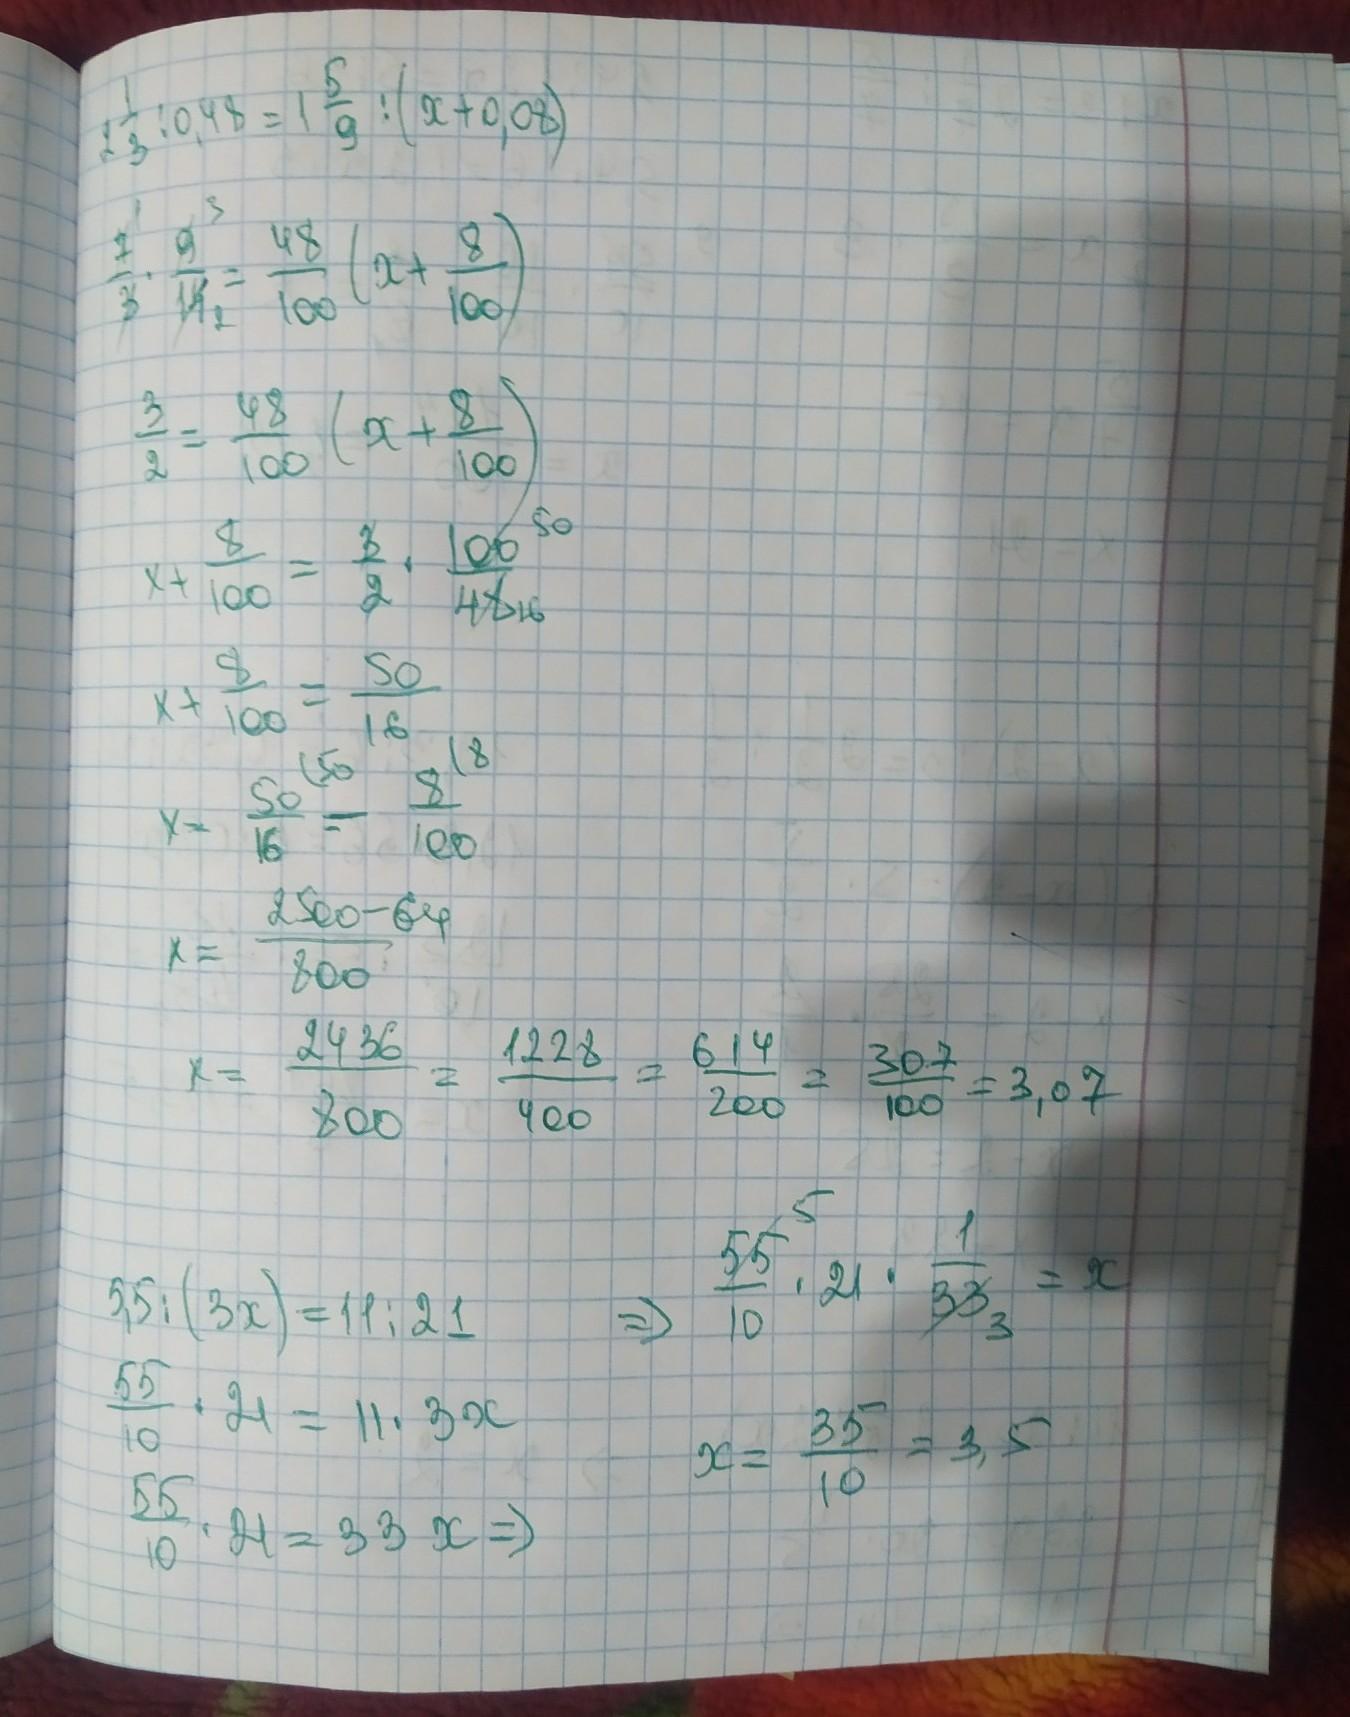 2 1/3 : 0,48 = 1 5/9 : (x + 0,08)
7/3 · 9/14 = 48/100 (x + 8/100)
3/2 = 48/100 (x + 8/100)
x + 8/100 = 3/2 · 100/48
x + 8/100 = 50/16
x = 50/16 (50 - 8/100 (8
x = 2500-64/800
x = 2436/800 = 1228/400 = 614/200 = 307/100 = 3,07
5,5 : (3x) = 11 : 21
55/10 · 21 = 11 · 3x
55/10 · 21 = 33x =>
=> 55/10 · 21 · 1/33 = x
x = 35/10 = 3,5